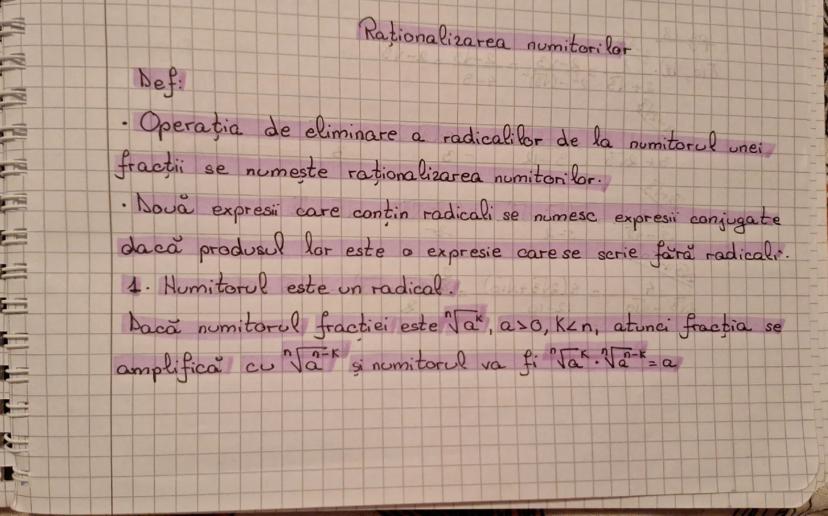 Raționalizarea numitorilor
Def:
• Operația de eliminare a radicalilor de la numitorul unei
fracții se numește raționalizarea numitorilor.
• Două expresii care conțin radicali se numesc expresii conjugate
dacă produsul lor este o expresie care se scrie fără radicali.
1. Numitorul este un radical.
Dacă numitorul fracției este ⁿ√aᵏ, a>0, K<n, atunci fracția se
amplifică cu ⁿ√aⁿ⁻ᵏ și numitorul va fi ⁿ√aᵏ · ⁿ√aⁿ⁻ᵏ = a